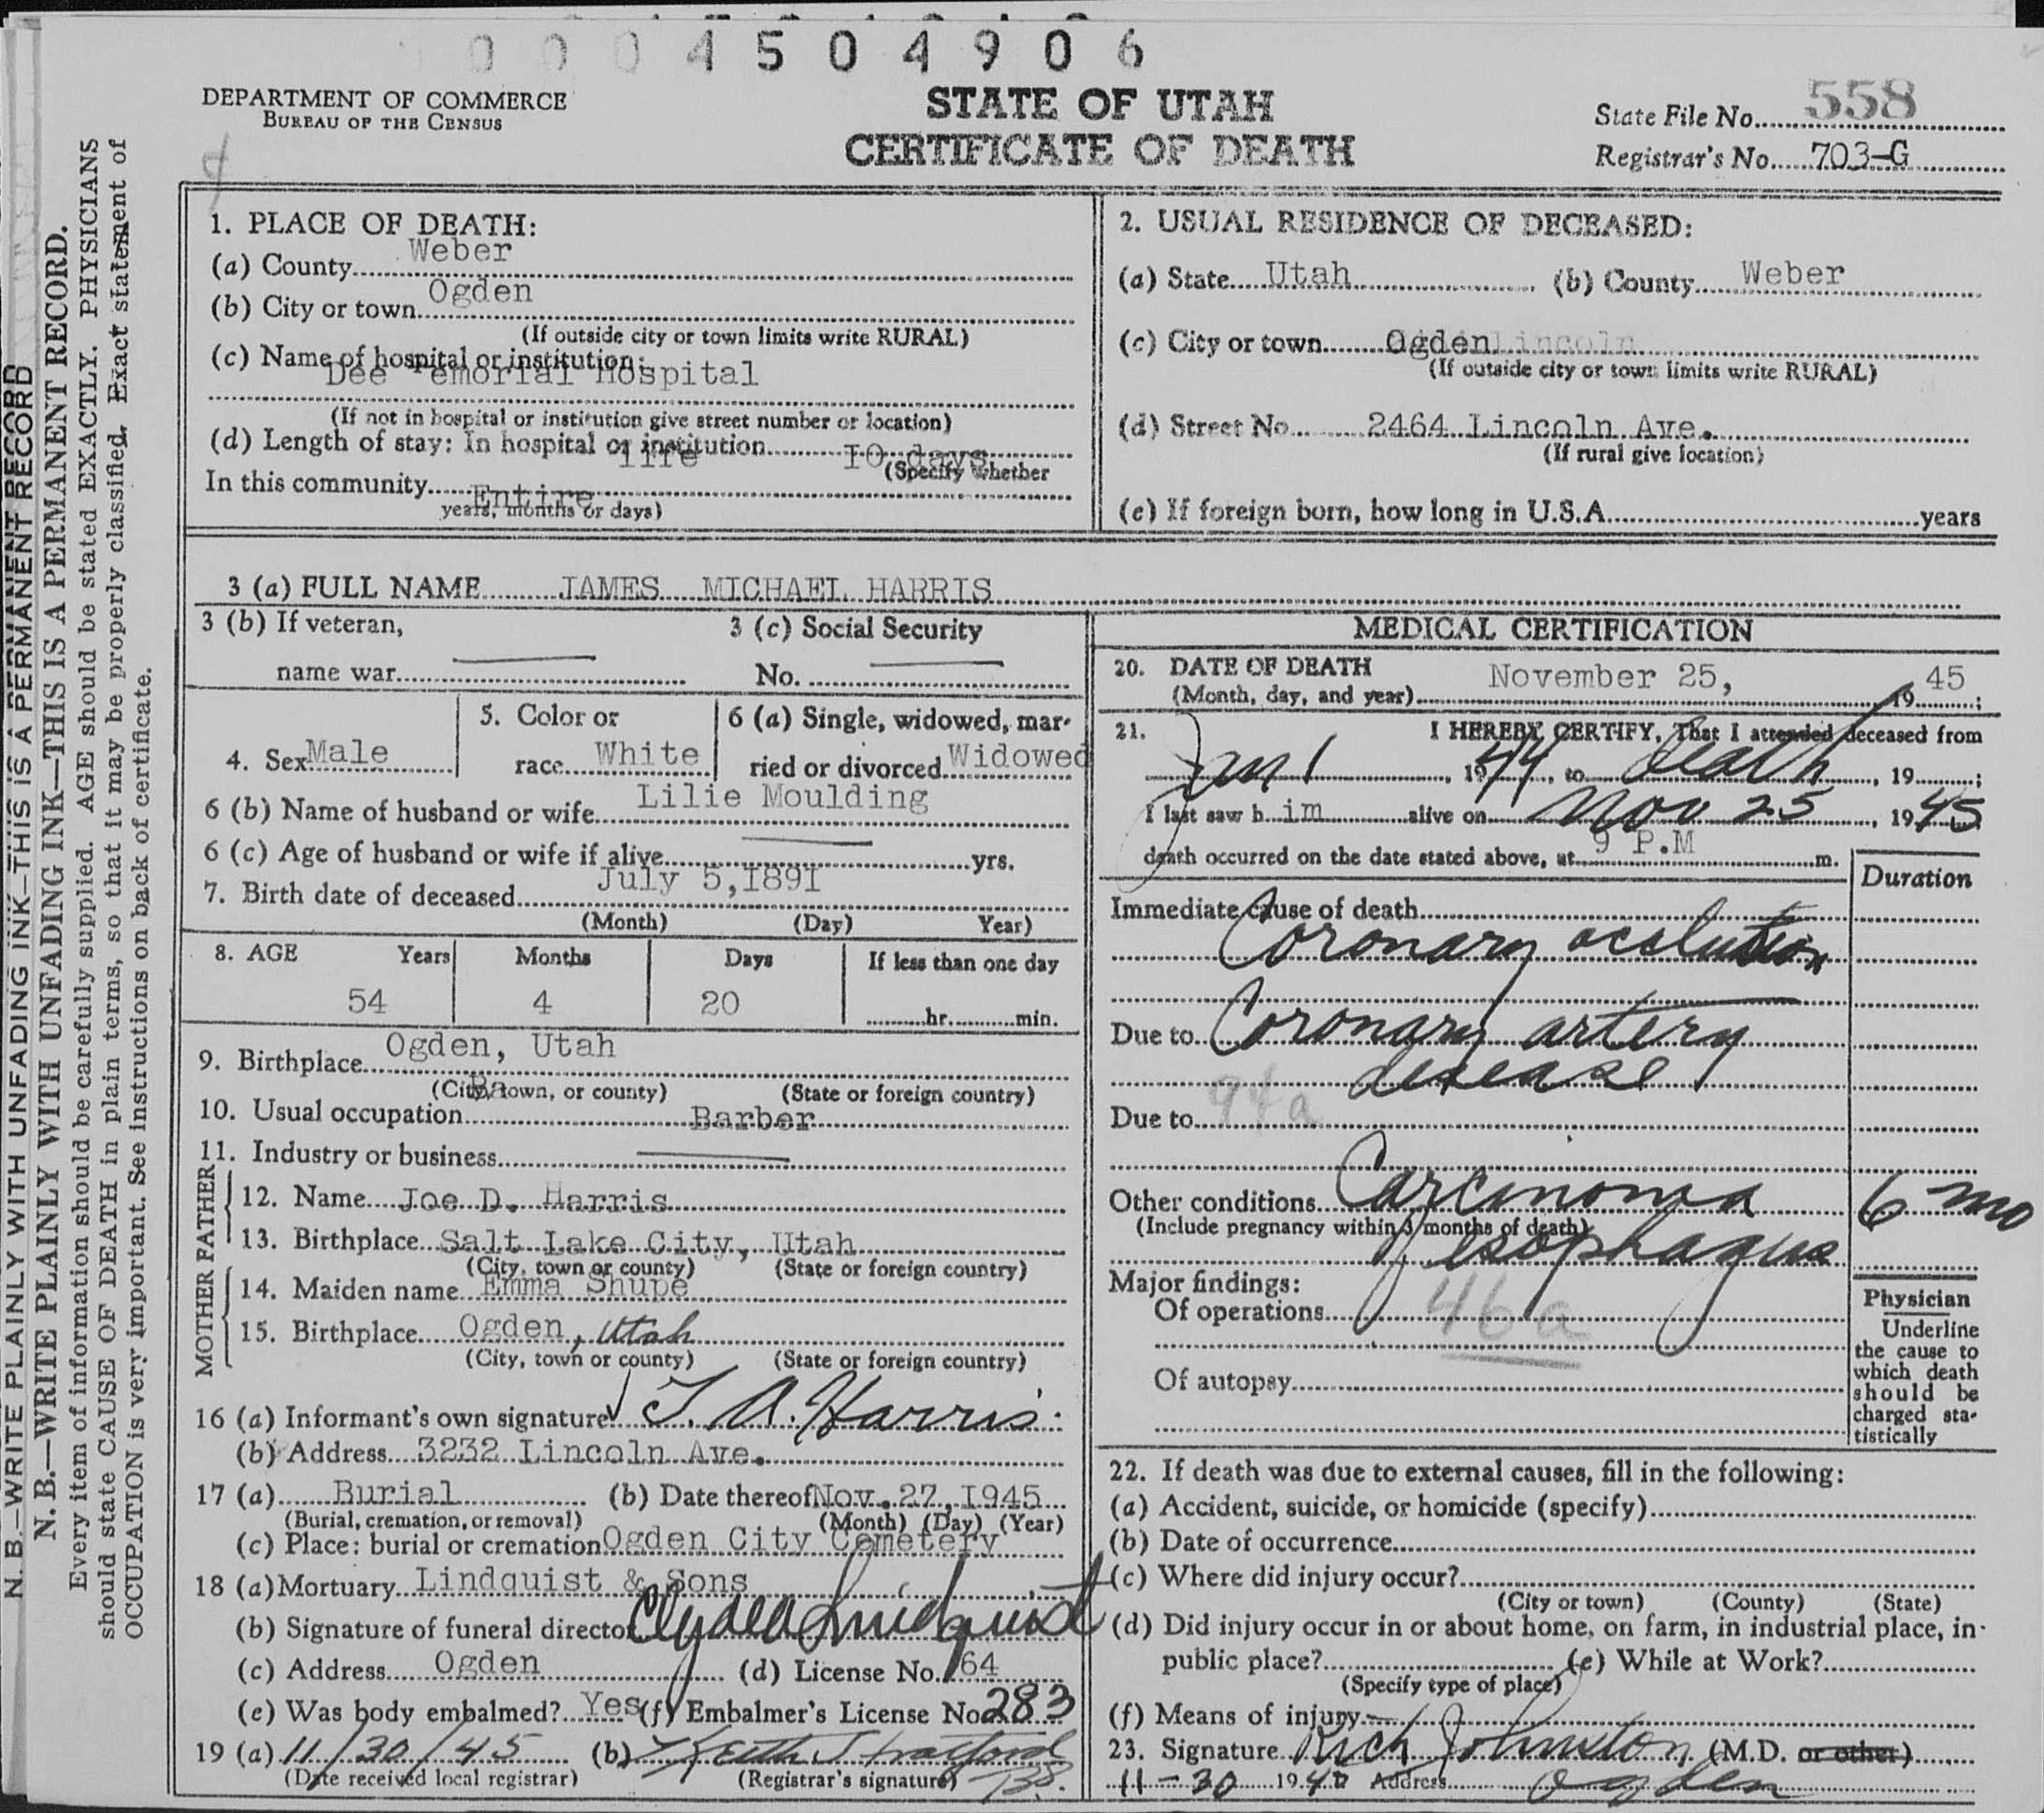 0004504906
DEPARTMENT OF COMMERCE
BUREAU OF THE CENSUS
STATE OF UTAH
CERTIFICATE OF DEATH
State File No. 558
Registrar's No. 703-G
N. B.—WRITE PLAINLY WITH UNFADING INK—THIS IS A PERMANENT RECORD
N. B.—WRITE PLAINLY WITH UNFADING INK—THIS IS A PERMANENT RECORD.
Every item of information should be carefully supplied. AGE should be stated EXACTLY. PHYSICIANS
should state CAUSE OF DEATH in plain terms, so that it may be properly classified. Exact statement of
OCCUPATION is very important. See instructions on back of certificate.
1. PLACE OF DEATH:
(a) County Weber
(b) City or town Ogden
(If outside city or town limits write RURAL)
(c) Name of hospital or institution:
Dee Memorial Hospital
(If not in hospital or institution give street number or location)
(d) Length of stay: In hospital or institution 10 days
(Specify whether
In this community Entire life
years, months or days)
2. USUAL RESIDENCE OF DECEASED:
(a) State Utah (b) County Weber
(c) City or town Ogden Lincoln
(If outside city or town limits write RURAL)
(d) Street No. 2464 Lincoln Ave.
(If rural give location)
(e) If foreign born, how long in U.S.A. years
3 (a) FULL NAME JAMES MICHAEL HARRIS
3 (b) If veteran,
name war
3 (c) Social Security
No.
4. Sex Male
5. Color or
race White
6 (a) Single, widowed, mar-
ried or divorced Widowed
6 (b) Name of husband or wife Lilie Moulding
6 (c) Age of husband or wife if alive yrs.
7. Birth date of deceased July 5, 1891
(Month) (Day) Year)
8. AGE Years Months Days If less than one day
54 4 20 hr. min.
9. Birthplace Ogden, Utah
(City, town, or county) (State or foreign country)
10. Usual occupation Barber
11. Industry or business
FATHER
12. Name Joe D. Harris
13. Birthplace Salt Lake City, Utah
(City, town or county) (State or foreign country)
MOTHER
14. Maiden name Emma Shupe
15. Birthplace Ogden, Utah
(City, town or county) (State or foreign country)
16 (a) Informant's own signature J. A. Harris
(b) Address 3232 Lincoln Ave.
17 (a) Burial (b) Date thereof Nov. 27, 1945
(Burial, cremation, or removal) (Month) (Day) (Year)
(c) Place: burial or cremation Ogden City Cemetery
18 (a) Mortuary Lindquist & Sons
(b) Signature of funeral director Clyde Lindquist
(c) Address Ogden (d) License No. 64
(e) Was body embalmed? Yes (f) Embalmer's License No. 283
19 (a) 11/30/45 (b) Keith Stratford
(Date received local registrar) (Registrar's signature)
MEDICAL CERTIFICATION
20. DATE OF DEATH
(Month, day, and year) November 25, 19 45;
21. I HEREBY CERTIFY, That I attended deceased from
Jan 1, 1944, to Death, 19 ;
I last saw h im alive on Nov 25, 1945
death occurred on the date stated above, at 9 P.M m.
Duration
Immediate cause of death
Coronary occlusion
Due to Coronary artery
disease
94a
Due to
Other conditions Carcinoma 6 mo
(Include pregnancy within 3 months of death)
of esophagus
Major findings:
Of operations 46a
Of autopsy
Physician
Underline
the cause to
which death
should be
charged sta-
tistically
22. If death was due to external causes, fill in the following:
(a) Accident, suicide, or homicide (specify)
(b) Date of occurrence
(c) Where did injury occur?
(City or town) (County) (State)
(d) Did injury occur in or about home, on farm, in industrial place, in
public place? (e) While at Work?
(Specify type of place)
(f) Means of injury
23. Signature Rich Johnston (M.D. or other)
11-30 19 Address Ogden